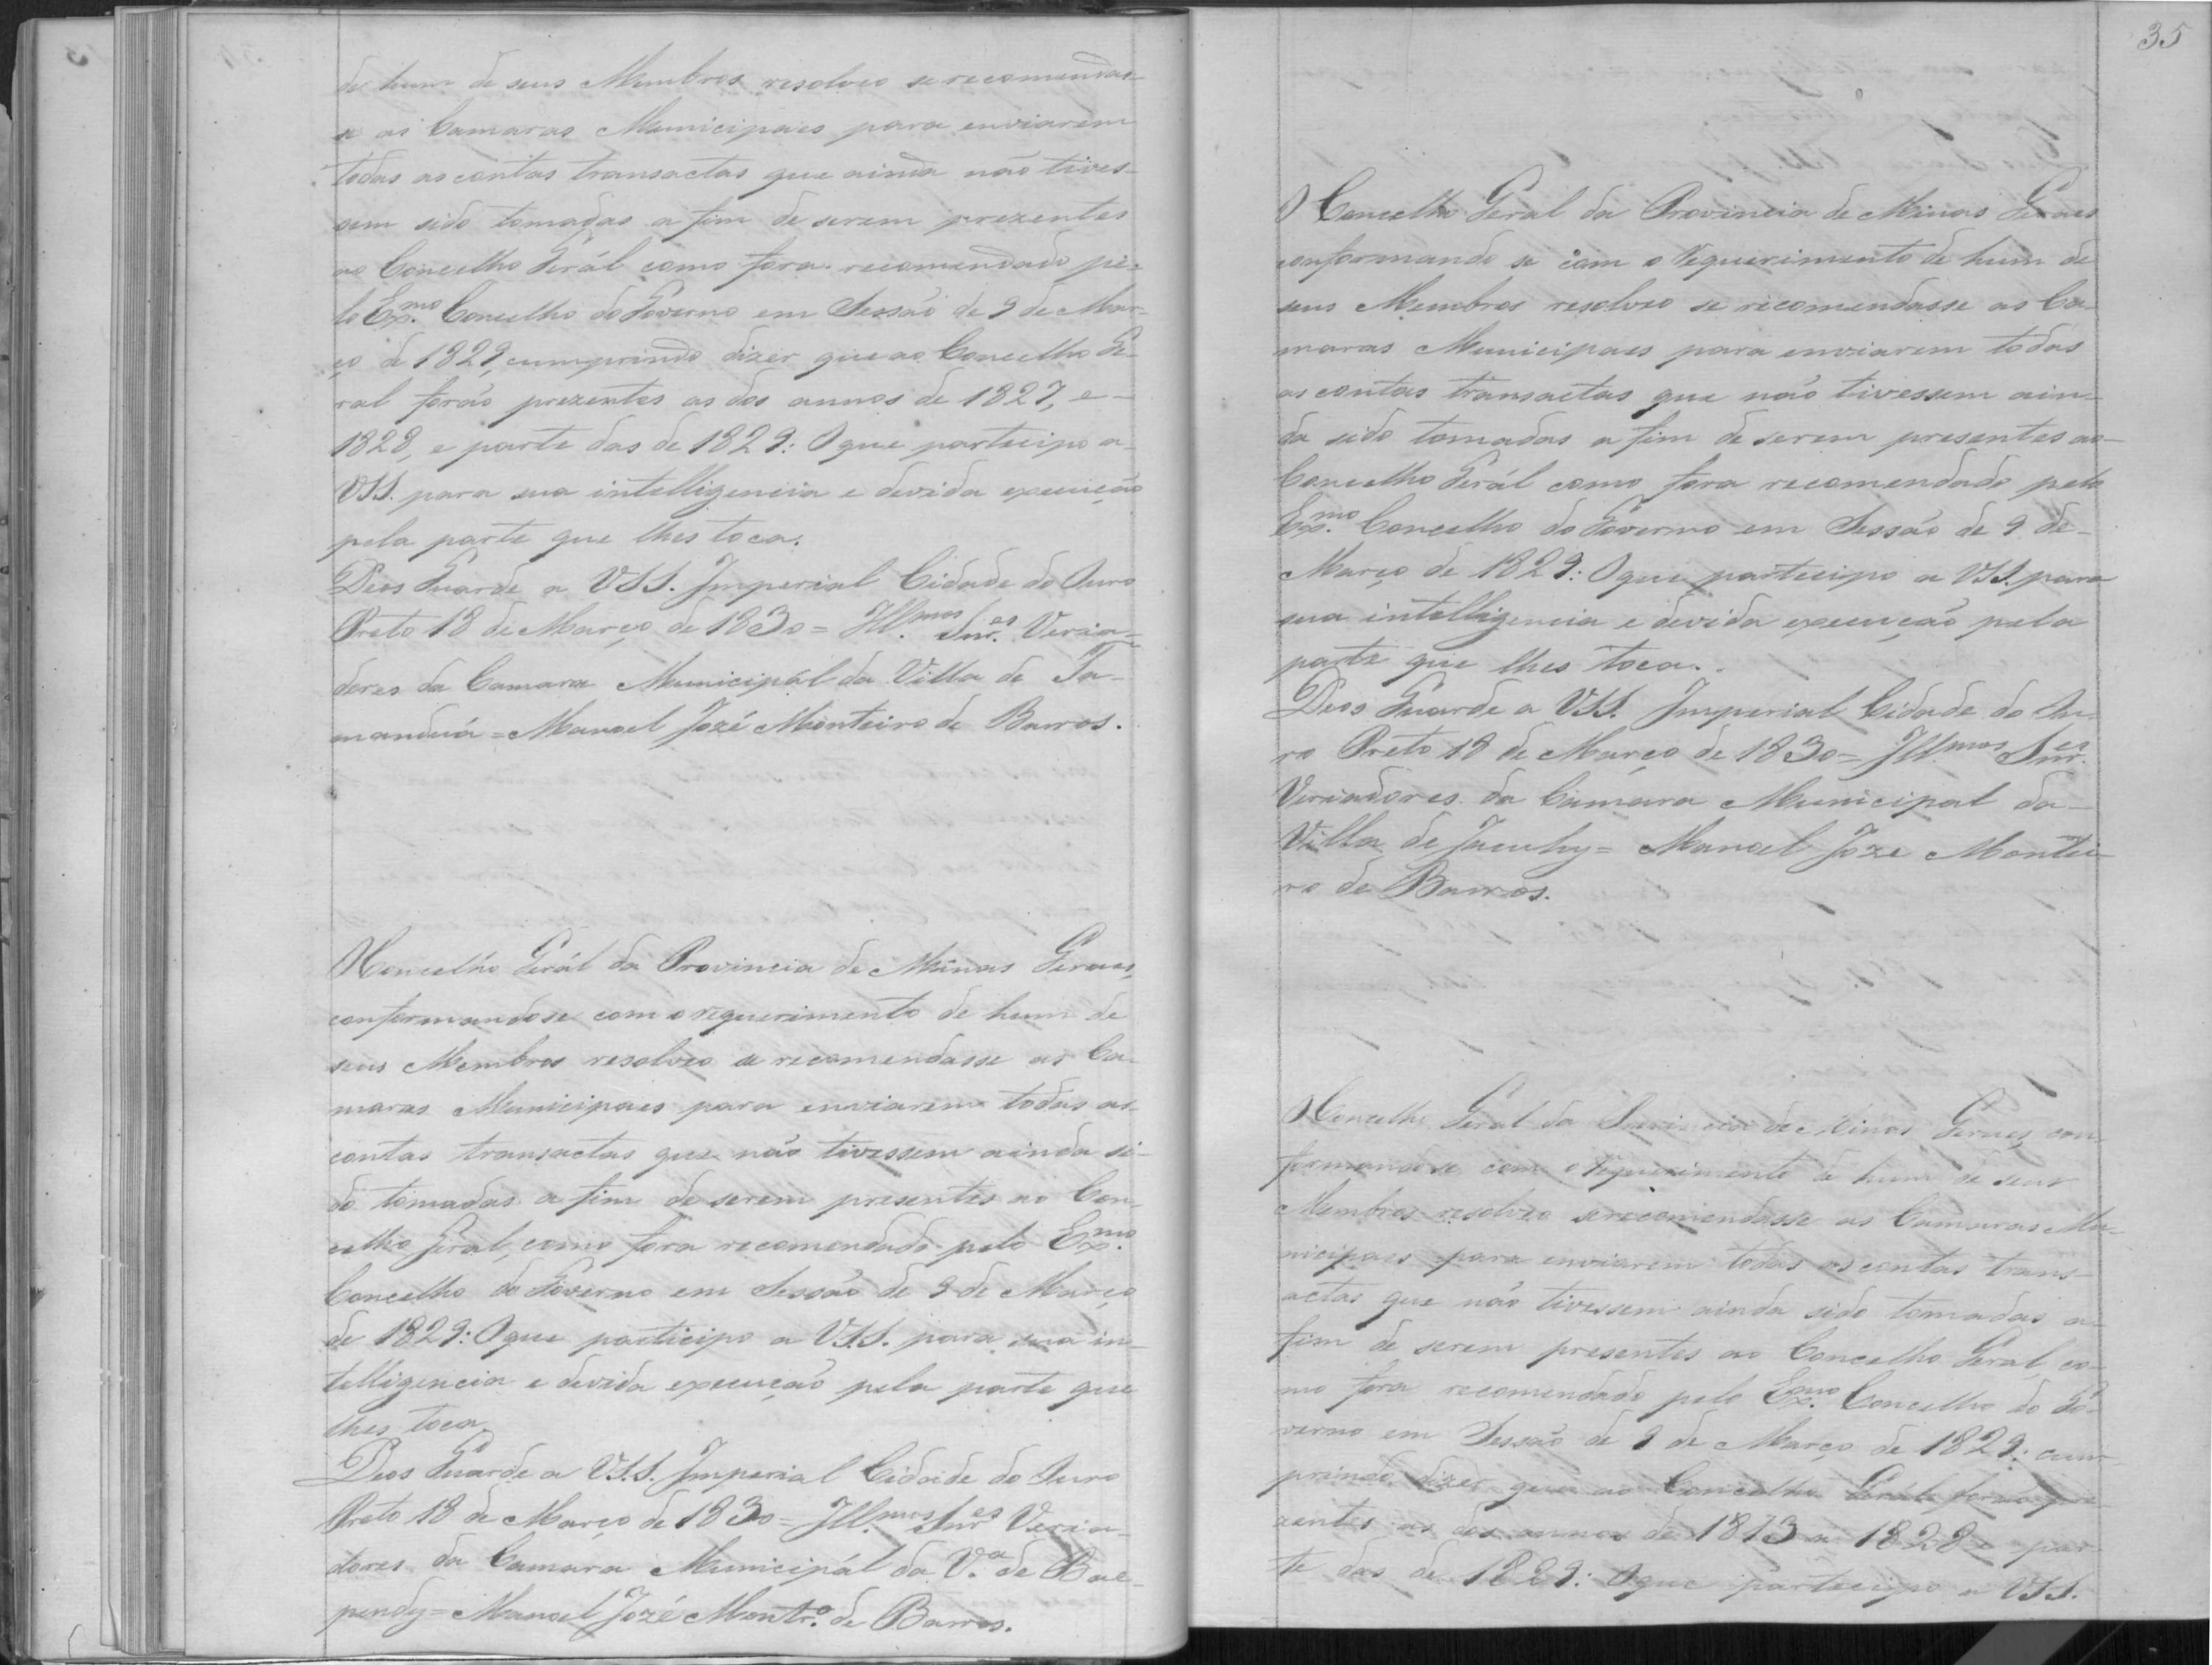 de hum de seus Membros resolveo se recomendas-
se as Camaras Municipaes para enviarem
todas as contas transactas que ainda não tives-
sem sido tomadas a fim de serem prezentes
ao Concelho Gerál como fora recomendado pe-
lo Exmo. Concelho do Governo em Sessão de 9 de Mar-
ço de 1829, cumprindo dizer que ao Concelho Ge-
ral forão prezentes as dos annos de 1827, e-
1828, e parte das de 1829: O que participo a-
VSS. para sua intelligencia e devida execução
pela parte que lhes toca.
Deos Guarde a VSS. Imperial Cidade do Ouro
Preto 18 de Março de 1830= Illmos. Snres. Veria-
dores da Camara Municipál da Villa de Ta-
manduá= Manoel Jozé Monteiro de Barros.
O Concelho Gerál da Provincia de Minas Geraes,
conformandose com o requerimento de hum de
seus Membros resolveo se recomendasse as Ca-
maras Municipaes para enviarem todas as-
contas transactas que não tivessem ainda si-
do tomadas a fim de serem presentes ao Con-
celho Geral, como fora recomendado pelo Exmo.
Concelho do Governo em Sessão de 9 de Março
de 1829: O que participo a VSS. para sua in-
telligencia e devida execução pela parte que
lhes toca.
Deos Guarde a VSS. Imperial Cidade do Ouro
Preto 18 de Março de 1830= Illmos. Snres. Veria-
dores da Camara Municipál da Va. de Bae-
pendy= Manoel Jozé Montro. de Barros.
35
O Concelho Geral da Provincia de Minas Geraes
conformando se com o requerimento de hum de
seus Membros resolveo se recomendasse as Ca-
maras Municipaes para enviarem todas
as contas transactas que não tivessem ain-
da sido tomadas a fim de serem presentes ao-
Concelho Gerál como fora recomendado pelo
Exmo. Concelho do Governo em Sessão de 9 de-
Março de 1829: O que participo a VSS. para
sua intelligencia e devida execução pela
parte que lhes toca.
Deos Guarde a VSS. Imperial Cidade do Ou-
ro Preto 18 de Março de 1830= Illmos. Snres.
Veriadores da Camara Municipal da-
Villa de Jacuhy= Manoel Joze Montei-
ro de Barros.
O Concelho Geral da Provincia de Minas Geraes, con-
formandose com o requerimento de hum de seus
Membros resolveo se recomendasse as Camaras Mu-
nicipaes para enviarem todas as contas trans-
actas que não tivessem ainda sido tomadas a-
fim de serem presentes ao Concelho Geral, co-
mo fora recomendado pelo Exmo. Concelho do Go-
verno em Sessão de 9 de Março de 1829: cum-
prindo dizer que ao Concelho Gerál forão pre-
zentes as dos annos de 1813 a 1828 e par-
te das de 1829: O que participo a VSS.